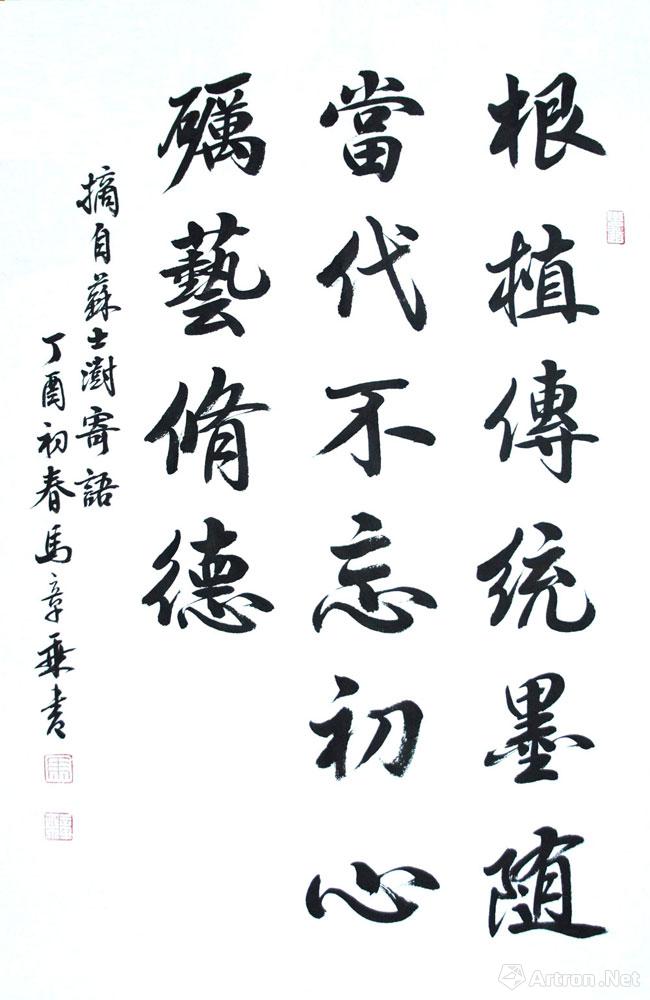 根植傳统墨随
當代不忘初心
礪藝脩德
摘自蘇士澍寄語
丁酉初春馬章乘书
Artron.Net